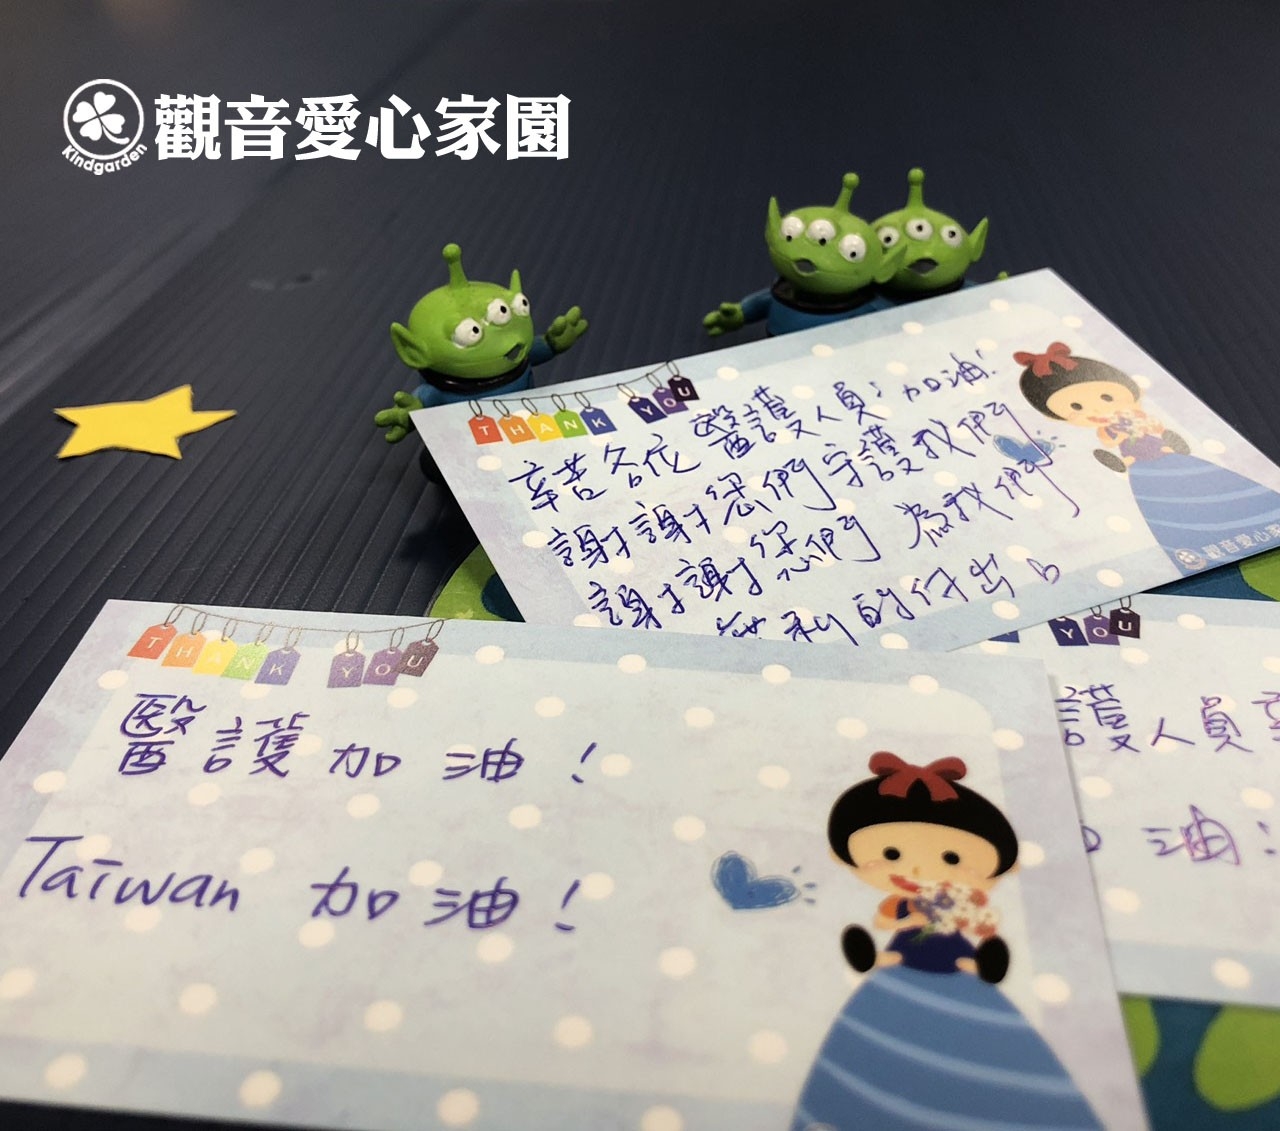 觀音愛心家園
Kindgarden
THANK YOU
辛苦各位醫護人員:加油!
謝謝您們守護我們
謝謝您們為我們
無私的付出
觀音愛心家
THANK YOU
醫護加油!
Taiwan 加油!
YOU
護人員
油!